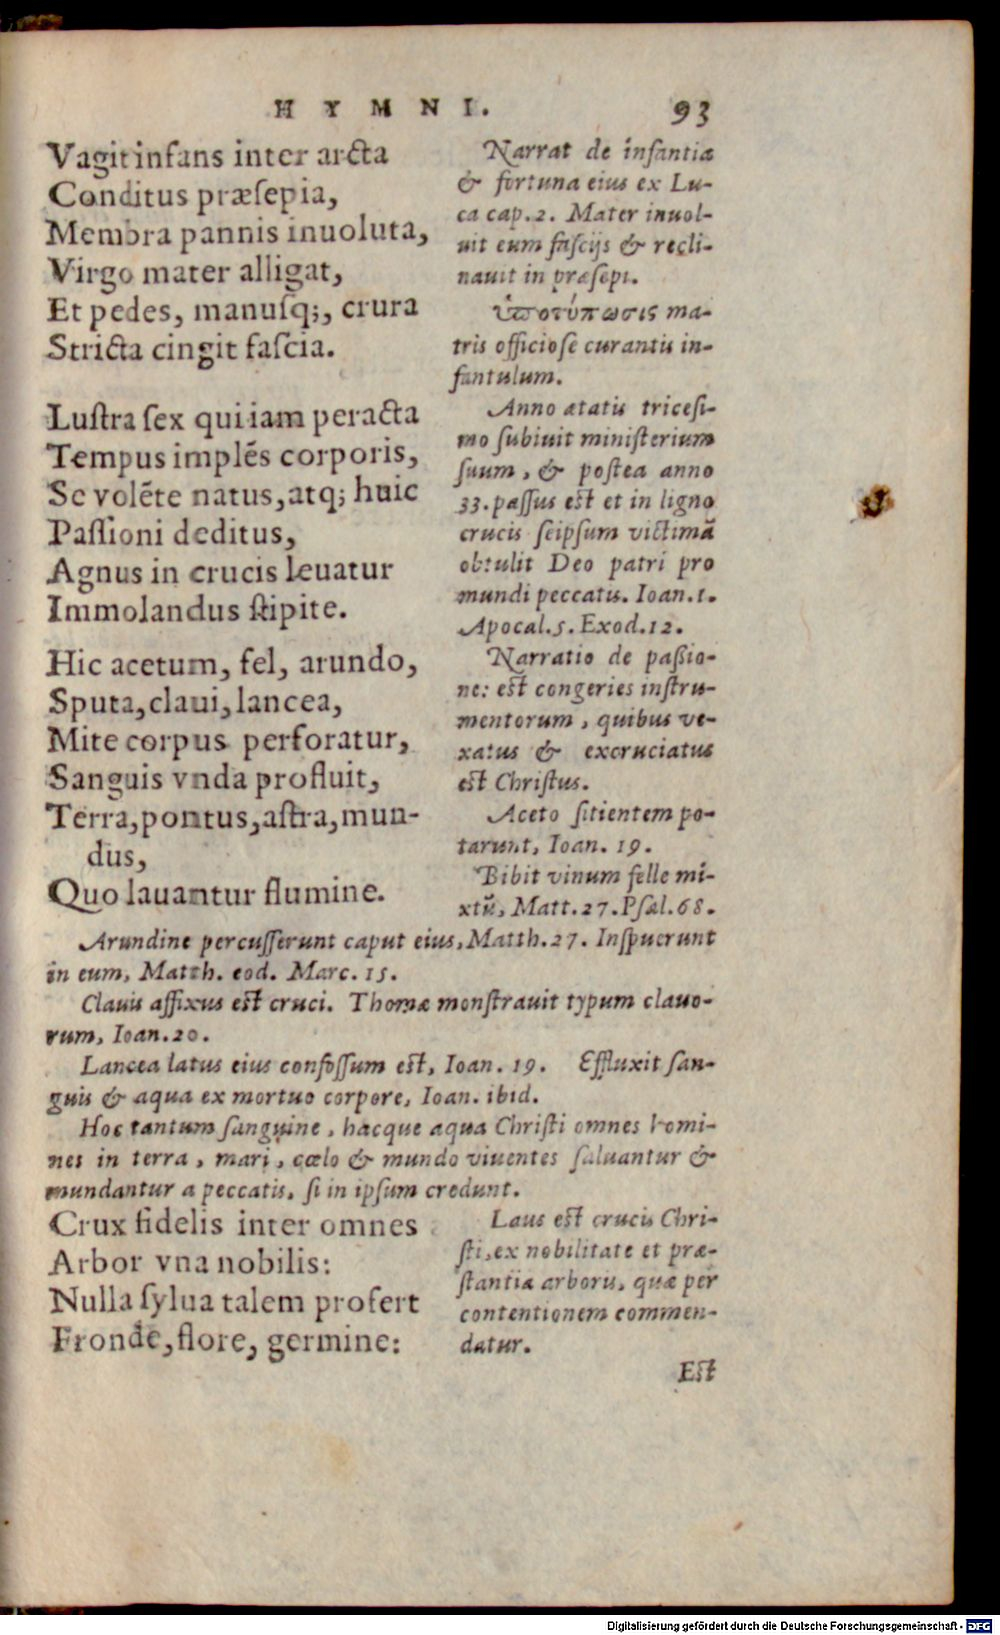 HYMNI. 93
Vagit infans inter arcta
Conditus præsepia,
Membra pannis inuoluta,
Virgo mater alligat,
Et pedes, manusq;, crura
Stricta cingit fascia.
Narrat de infantia
& fortuna eius ex Lu-
ca cap. 2. Mater inuol-
uit eum fascijs & recli-
nauit in præsepi.
ὑποτύπωσις ma-
tris officiose curantis in-
fantulum.
Lustra sex qui iam peracta
Tempus implẽs corporis,
Se volẽte natus, atq; huic
Passioni deditus,
Agnus in crucis leuatur
Immolandus stipite.
Anno ætatis tricesi-
mo subiuit ministerium
suum, & postea anno
33. passus est et in ligno
crucis seipsum victimã
obtulit Deo patri pro
mundi peccatis. Ioan. 1.
Apocal. 5. Exod. 12.
Hic acetum, fel, arundo,
Sputa, claui, lancea,
Mite corpus perforatur,
Sanguis vnda profluit,
Terra, pontus, astra, mun-
dus,
Quo lauantur flumine.
Narratio de passio-
ne: est congeries instru-
mentorum, quibus ve-
xatus & excruciatus
est Christus.
Aceto sitientem po-
tarunt, Ioan. 19.
Bibit vinum felle mi-
xtũ, Matt. 27. Psal. 68.
Arundine percusserunt caput eius, Matth. 27. Inspuerunt
in eum, Matth. eod. Marc. 15.
Clauis affixus est cruci. Thomæ monstrauit typum clauo-
rum, Ioan. 20.
Lancea latus eius confossum est, Ioan. 19. Effluxit san-
guis & aqua ex mortuo corpore, Ioan. ibid.
Hoc tantum sanguine, hacque aqua Christi omnes homi-
nes in terra, mari, cœlo & mundo viuentes saluantur &
mundantur a peccatis, si in ipsum credunt.
Crux fidelis inter omnes
Arbor vna nobilis:
Nulla sylua talem profert
Fronde, flore, germine:
Laus est crucis Chri-
sti, ex nobilitate et præ-
stantia arboris, quæ per
contentionem commen-
datur.
Est
Digitalisierung gefördert durch die Deutsche Forschungsgemeinschaft - DFG